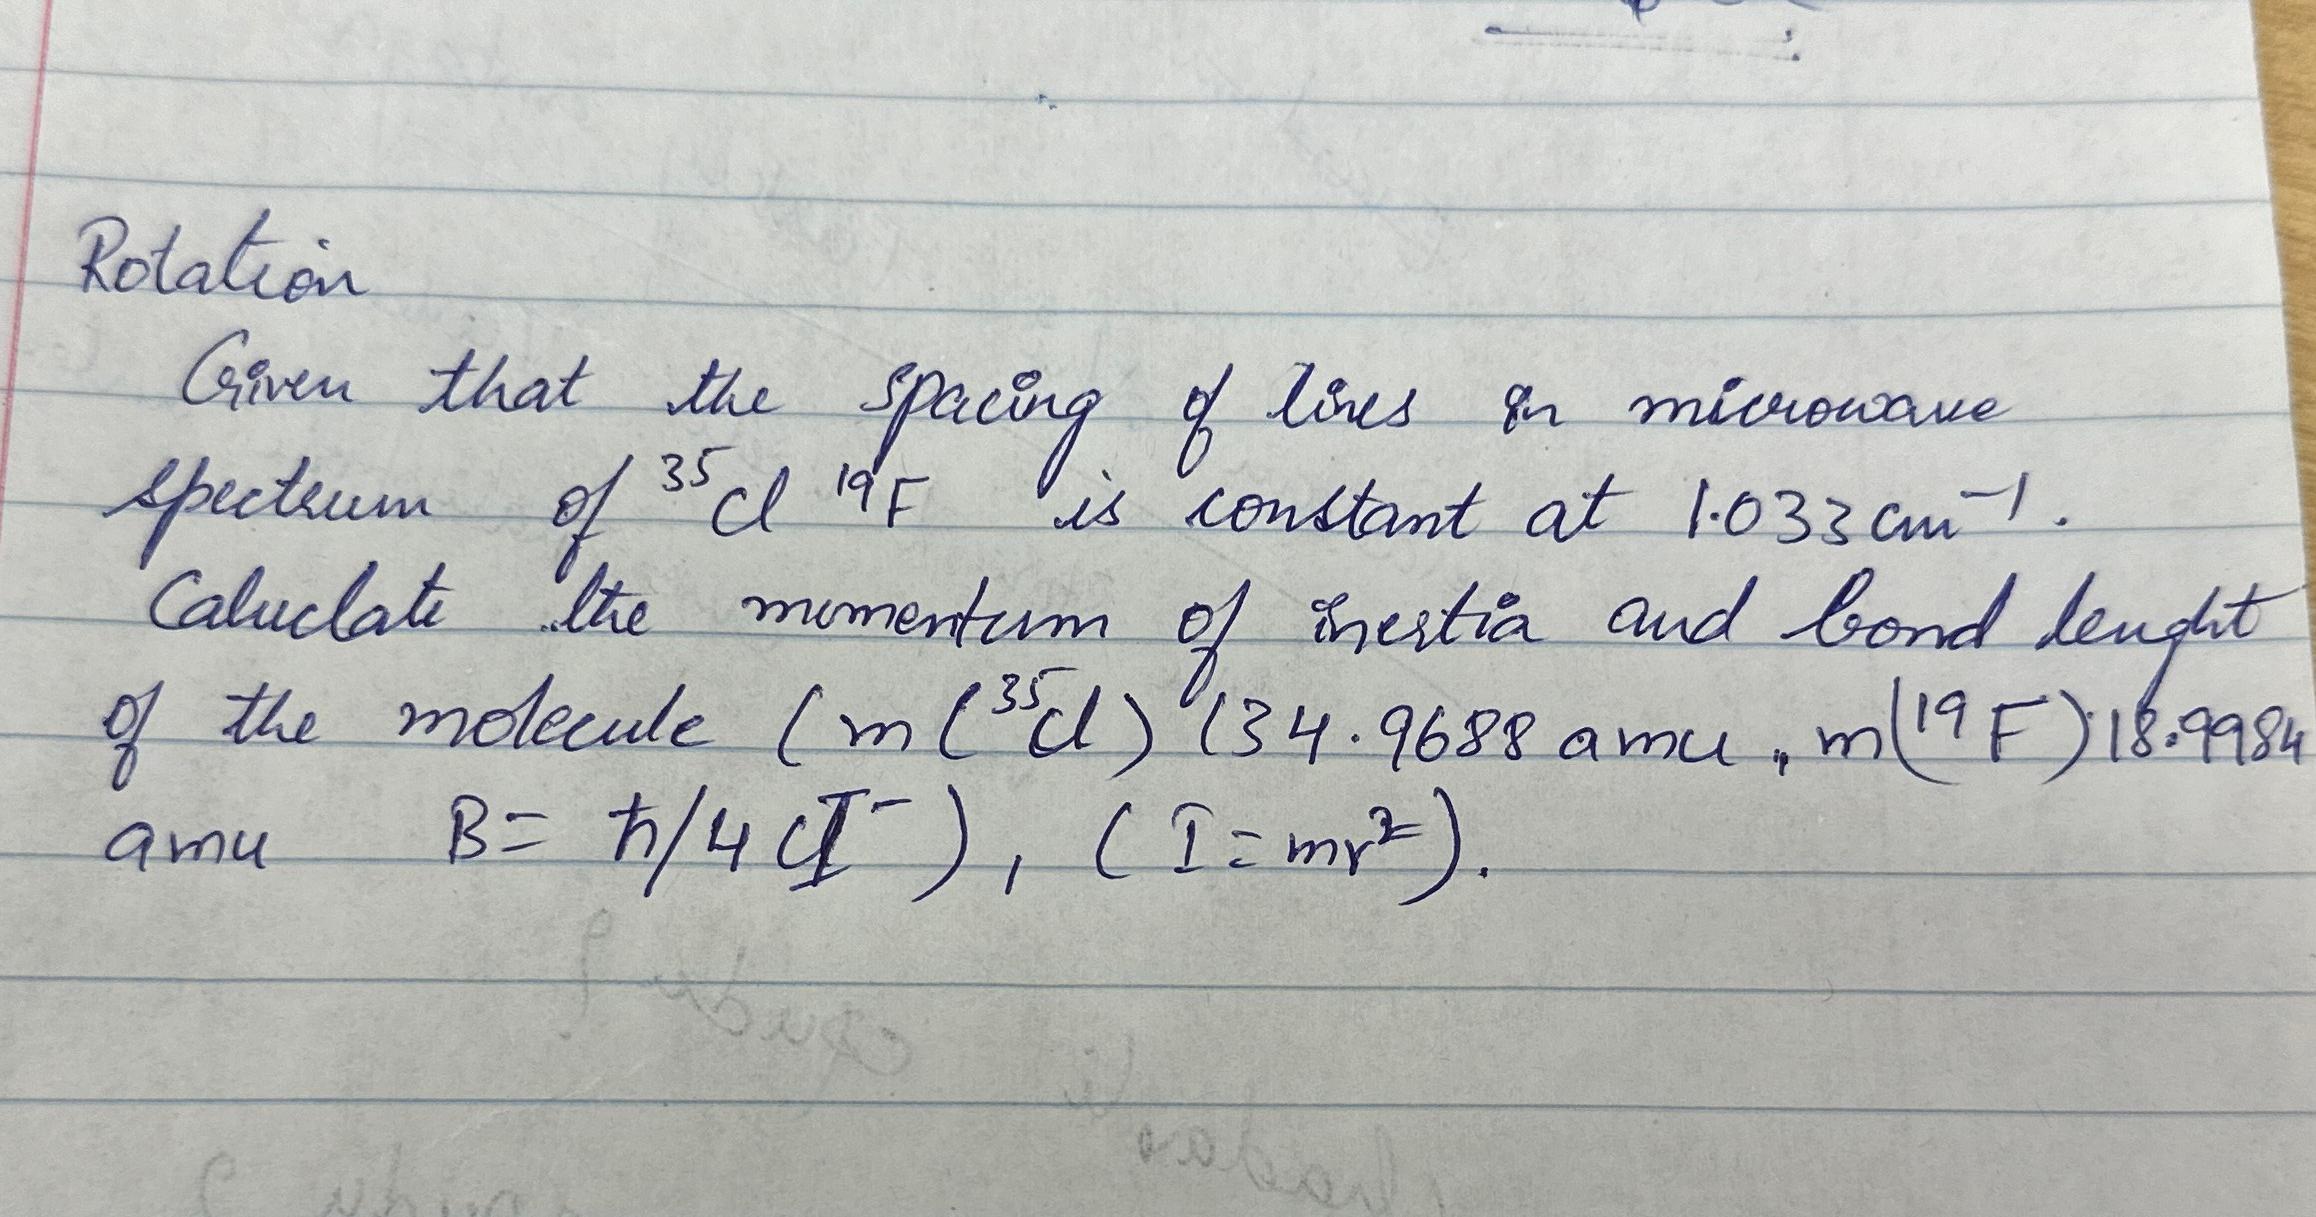 Rotation
Given that the spacing of lines in microwave
spectrum of ³⁵Cl ¹⁹F is constant at 1.033 cm⁻¹.
Caluclate the momentum of inertia and bond lenght
of the molecule (m(³⁵Cl) (34.9688 amu, m(¹⁹F) 18.9984
amu B = ħ/4 cI⁻), (I = mr²).